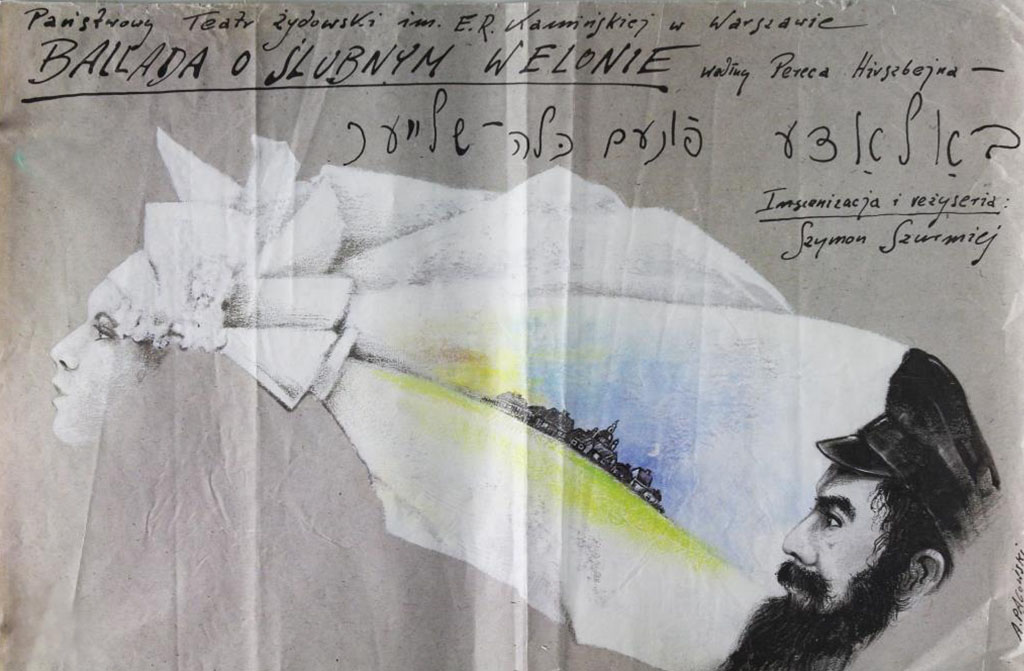 Państwowy Teatr Żydowski im. E.R. Kamińskiej w Warszawie
BALLADA O ŚLUBNYM WELONIE według Pereca Hirszbejna —
באַלאַדע פֿונעם כּלה-שלייער
Inscenizacja i reżyseria:
Szymon Szurmiej
A. Pągowski